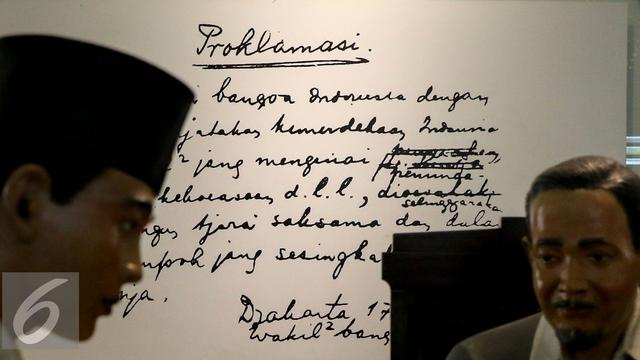 Proklamasi.
bangsa Indonesia dengan
jatakan kemerdekaan Indonesia
2 jang mengenai
penninda-
kekoeasaan d.l.l.,
selenggarakan
tjara saksama dan dala
jang sesingkat
nja.
Djakarta 17
Wakil2 bang
6